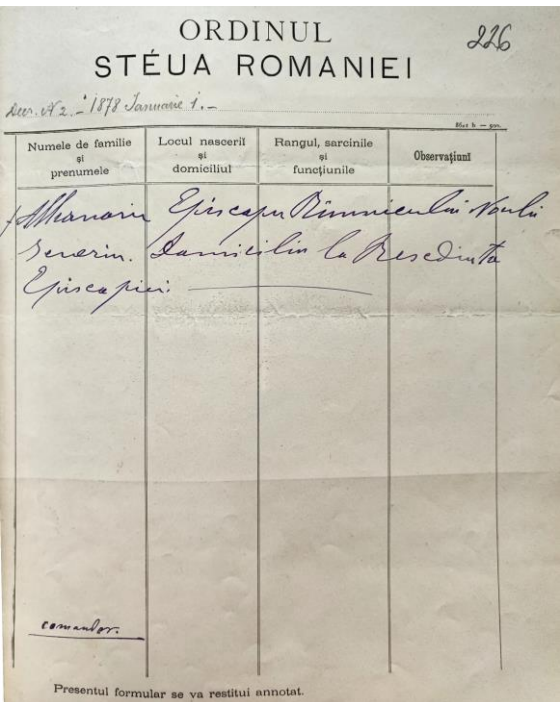 ORDINUL
226
STÉUA ROMANIEI
Decr. N 2. - 1878 Ianuarie 1. -
Numele de familie și prenumele
Locul nasceriĭ și domiciliul
Rangul, sarcinile și funcțiunile
Observațiunĭ
† Athanasiu Episcopu Rîmnicului Noului
Severin. Domiciliu la Resedinta
Episcopiei.
comandor.
Presentul formular se va restitui annotat.